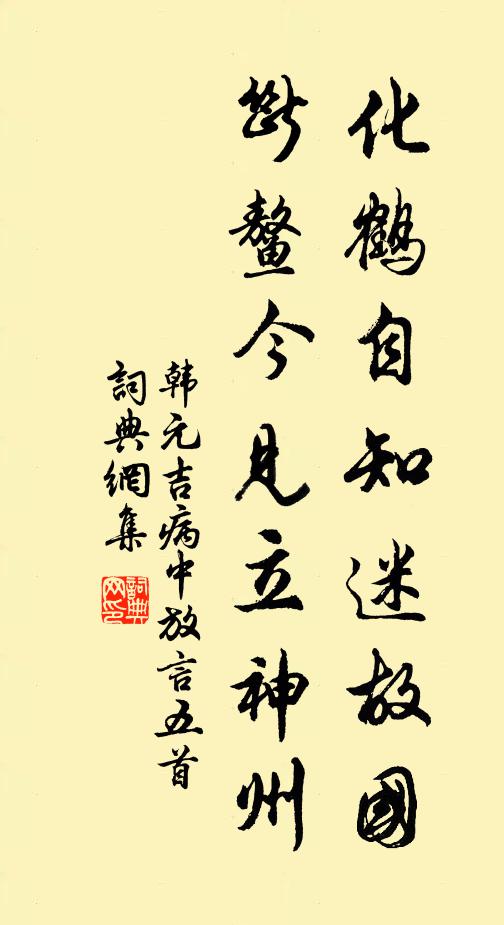 化鶴自知迷故國
斷鼇今見立神州
韩元吉病中放言五首
詞典網集
詞典
网印